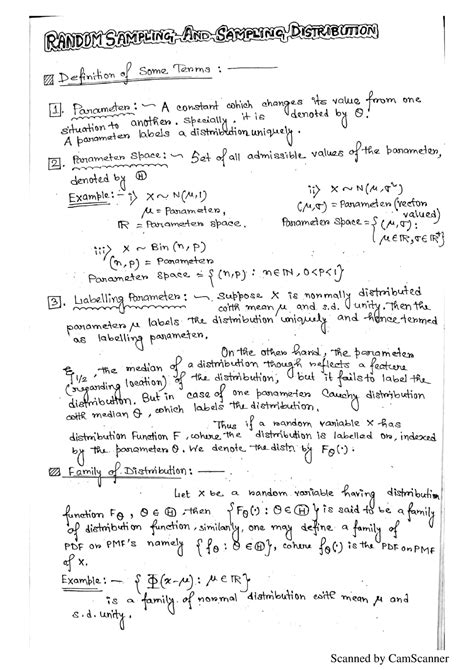 RANDOM SAMPLING AND SAMPLING DISTRIBUTION
Definition of Some Terms : —
1. Parameter : ~ A constant which changes its value from one
situation to another. Specially, it is denoted by θ.
A parameter labels a distribution uniquely.
2. Parameter Space : ~ Set of all admissible values of the parameter,
denoted by Ⓗ
Example: - i) X ~ N(μ,1)
μ = Parameter,
ℝ = Parameter space.
ii) X ~ N(μ,σ²)
(μ,σ) = Parameter (vector
valued)
Parameter Space = {(μ,σ):
μ∈ℝ, σ∈ℝ⁺}
iii) X ~ Bin (n, p)
(n,p) = Parameter
Parameter space = {(n,p) : n∈ℕ, 0<p<1}
3. Labelling Parameter : ~ Suppose X is normally distributed
with mean μ and s.d. unity. Then the
parameter μ labels the distribution uniquely and hence termed
as labelling parameter.
On the other hand, the parameter
ξ1/2, the median of a distribution though reflects a feature
(regarding location) of the distribution, but it fails to label the
distribution. But in case of one parameter Cauchy distribution
with median θ, which labels the distribution.
Thus if a random variable X has
distribution function F, where the distribution is labelled on, indexed
by the parameter θ. We denote the distn by Fθ(·).
Family of Distribution : —
Let X be a random variable having distribution
function Fθ, θ∈Ⓗ, then {Fθ(·) : θ∈Ⓗ} is said to be a family
of distribution function, similarly, one may define a family of
PDF or PMF's namely {fθ : θ∈Ⓗ}, where fθ(·) is the PDF or PMF
of X.
Example: - {Φ(x-μ) : μ∈ℝ}
is a family of normal distribution with mean μ and
s.d. unity.
Scanned by CamScanner